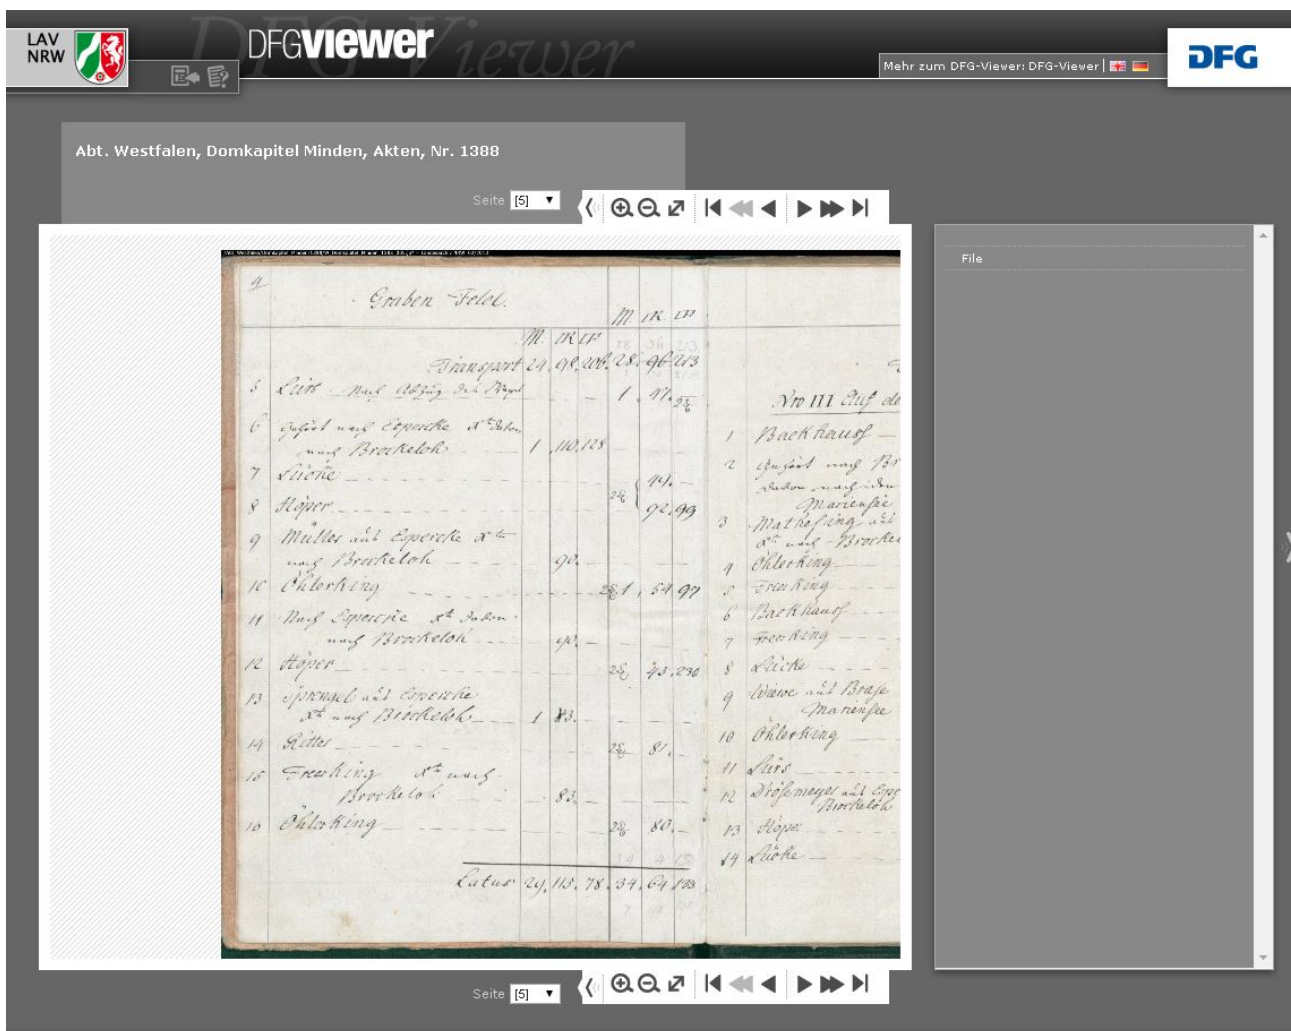 LAV
NRW
DFG-Viewer
DFGviewer
Mehr zum DFG-Viewer: DFG-Viewer
DFG
Abt. Westfalen, Domkapitel Minden, Akten, Nr. 1388
Seite [5]
File
4
Graben Feld.
M. IR IF
M. IR IF
Transport 24. 98. 206. 28. 96 213
5 Lürs nach Abzug des
1. 47.
6 Gehört nach Esperke Xt davon
nach Brockeloh 1. 110. 128
7 Lücke
44.
8 Höper
92. 99
9 Müller aus Esperke Xtn
nach Brockeloh 90.
10 Öhlerking 1. 54 97
11 Nach Esperke Xt davon
nach Brockeloh 90.
12 Höper 43. 236
13 Sprengel aus Esperke
Xtn nach Brockeloh 1 83.
14 Ritter 81.
15 Freerking Xtn nach
Brockeloh 83.
16 Öhlerking 80.
Latus 29. 115. 78. 34. 64 133
Nro III Auf de
1 Backhauss
2 Gehört nach Br
davon nach den
Mariensee
3 Mathesing aus
Xtn nach Brockel
4 Öhlerking
5 Freerking
6 Backhauss
7 Freerking
8 Lücke
9 aus Brase
Mariensee
10 Öhlerking
11 Lürs
12 Drössmeyer aus Espe
Brockeloh
13 Höper
14 Lücke
Seite [5]